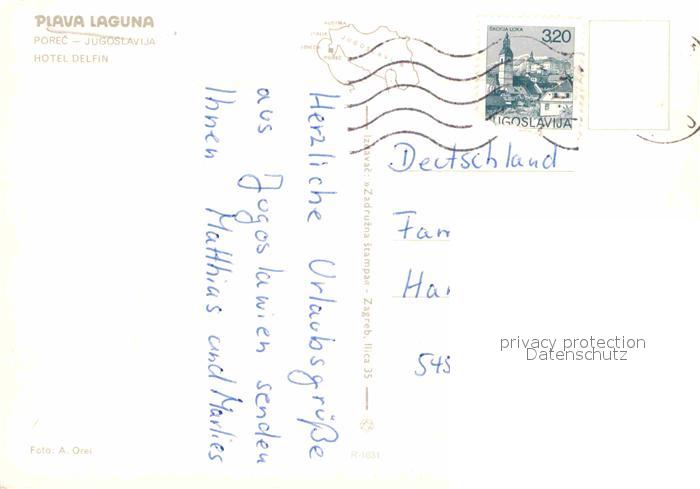 PLAVA LAGUNA
POREČ – JUGOSLAVIJA
HOTEL DELFIN
AUSTRIA
ITALIA
JUGOSLAVIJA
POREČ
ŠKOFJA LOKA
3,20
JUGOSLAVIJA
Herzliche Urlaubsgrüße
aus Jugoslawien senden
Ihnen Matthias und Marlies
Izdavač: »Zadružna štampa« - Zagreb, Ilica 35
Deutschland
Fam
Ha
545
privacy protection
Datenschutz
Foto: A. Orel
R-1631